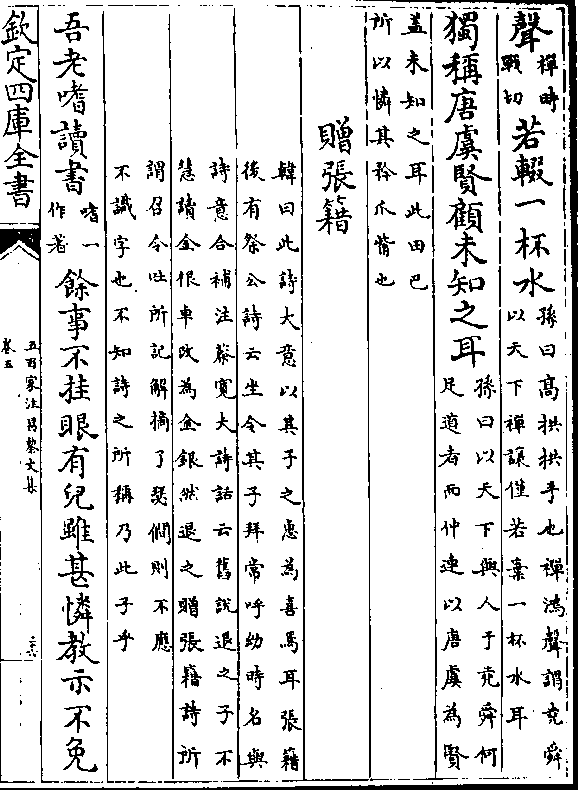 聲禪時戰切若輟一杯水孫曰高拱拱手也禪鴻聲謂堯舜以天下禪讓僅若棄一杯水耳
獨稱唐虞賢顧未知之耳孫曰以天下與人于堯舜何足道者而仲連以唐虞為賢
蓋未知之耳此田巴所以憐其矜爪觜也
贈張籍
韓曰此詩大意以其子之惠為喜焉耳張籍
後有祭公詩云坐令其子拜常呼幼時名與
詩意合補注蔡寬夫詩話云舊說退之子不
慧讀金根車改為金銀然退之贈張籍詩所
謂召令吐所記解摘了瑟僩則不應
不識字也不知詩之所稱乃此子乎
吾老嗜讀書嗜一作著餘事不挂眼有兒雖甚憐教示不免
欽定四庫全書
五百家注昌黎文集
卷五
二十六